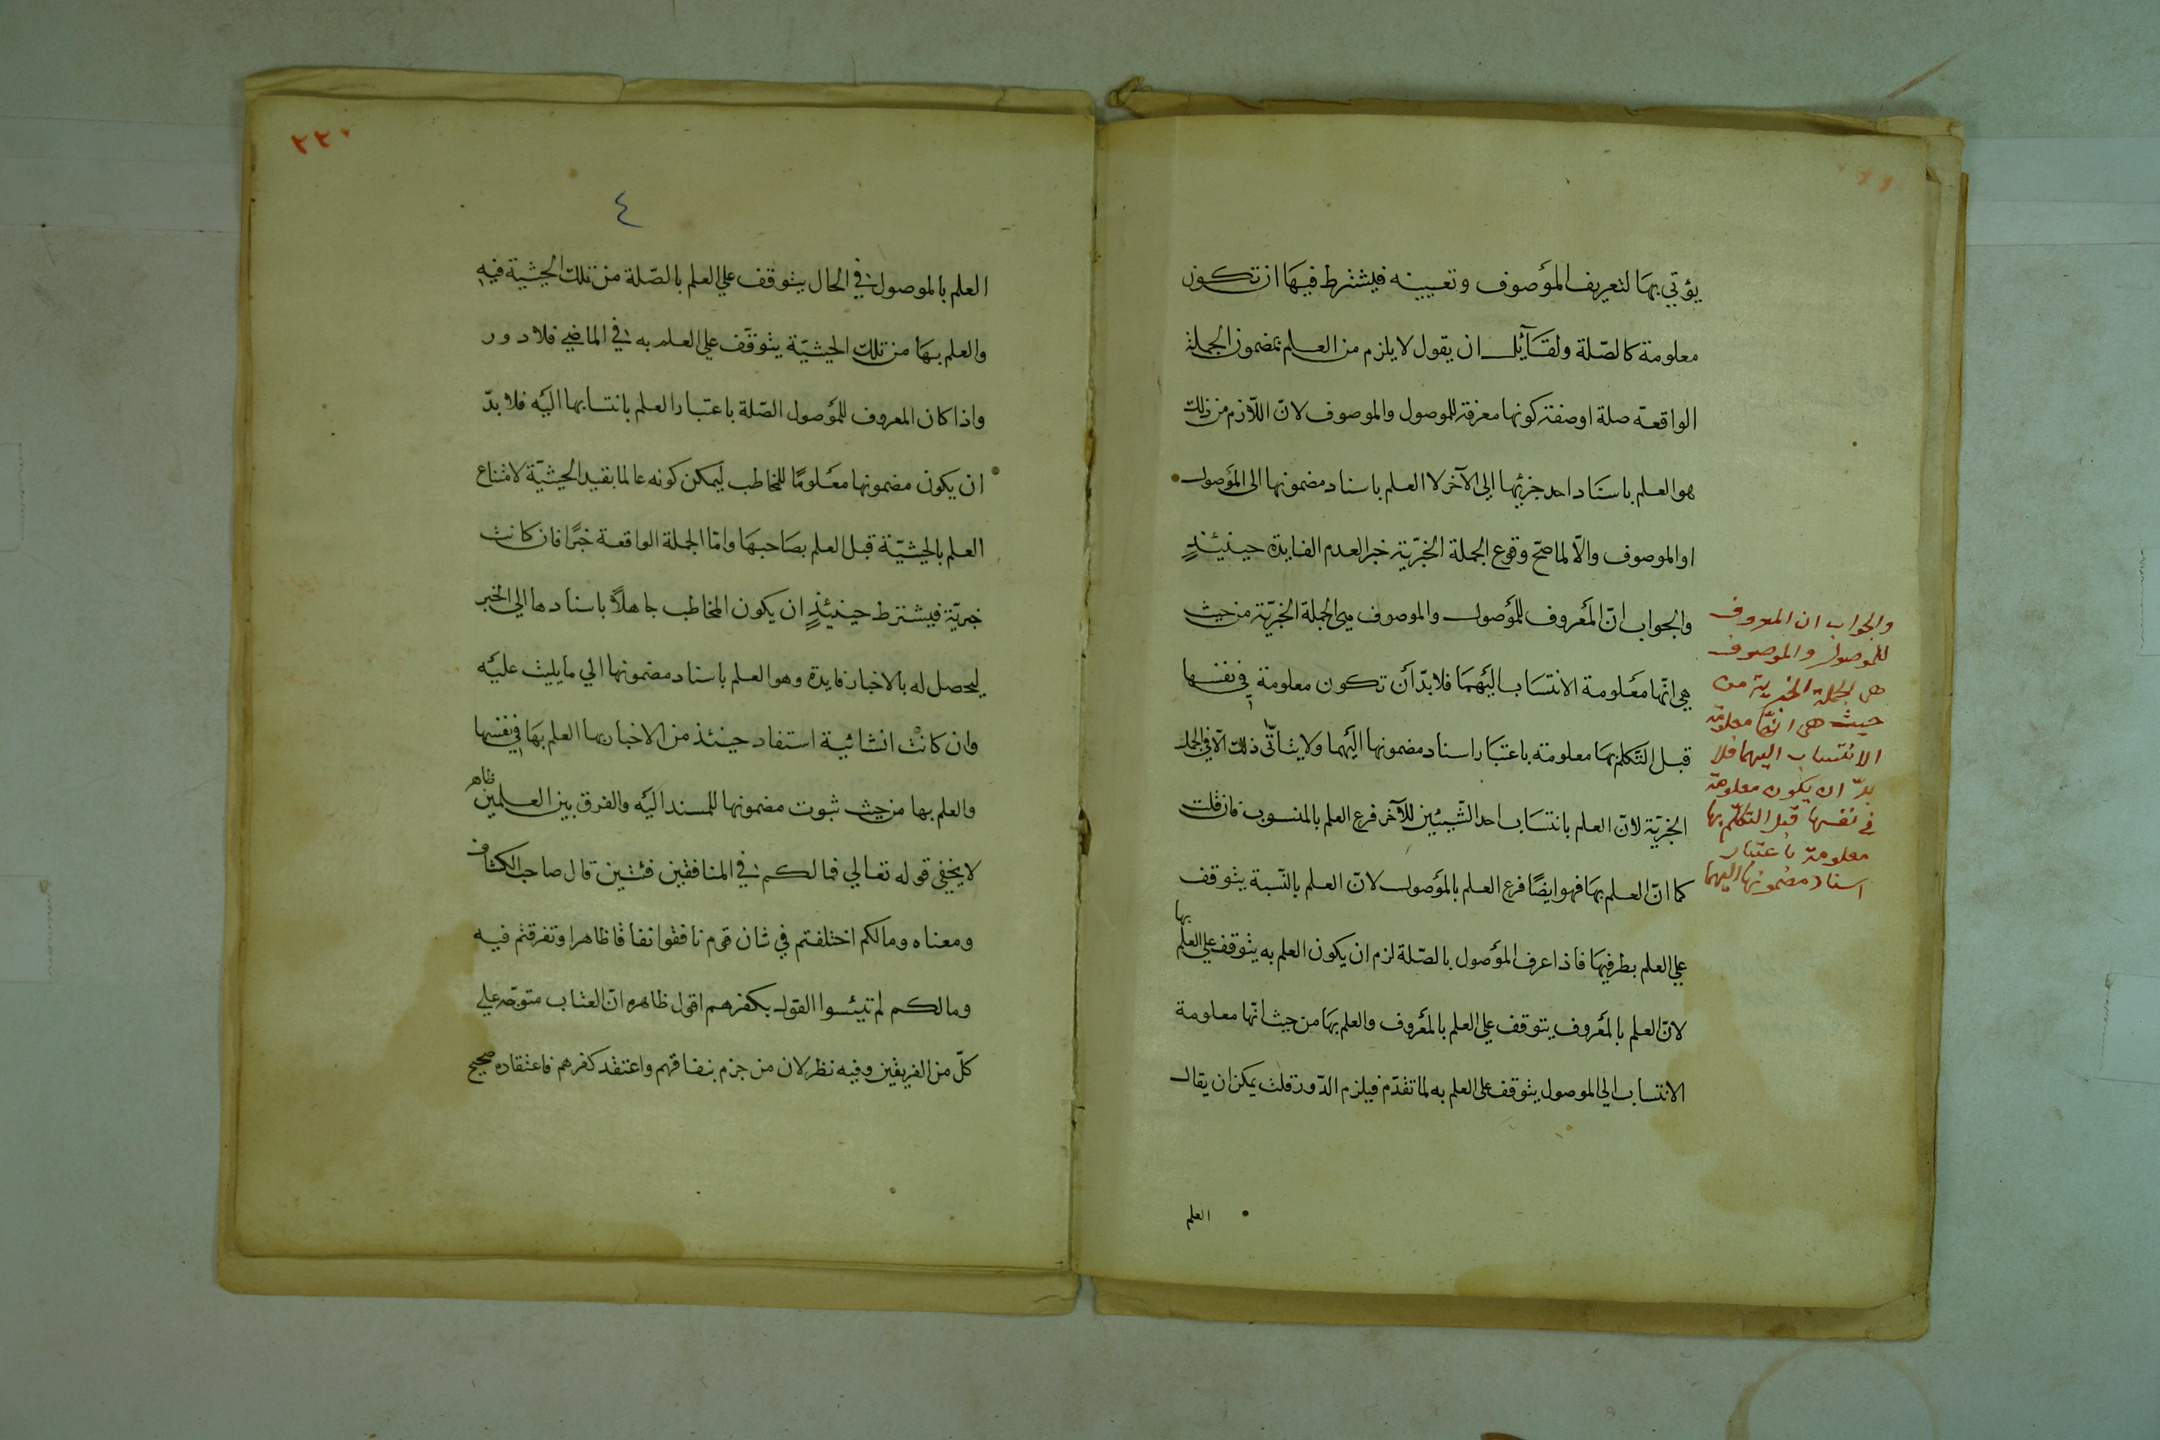 يؤتي بها لتعريف المؤصوف وتعيينه فيشترط فيها ان تكون
معلومة كالصّلة ولقآئل ان يقول لا يلزم من العلم بمضمون الجملة
الواقعة صلة او صفة كونها معرفة للموصول والموصوف لانّ اللّازم من ذلك
هو العلم باسناد احد جزئيها الي الآخر لا العلم باسناد مضمونها الى المؤصول
او الموصوف والّا لما صحّ وقوع الجملة الخبريّة خبر العدم الفايدة حينئذٍ
والجواب انّ المعروف للمؤصول والموصوف هي الجملة الخبريّة من حيث
هي انّها معلومة الانتساب اليهما فلا بدّ أن تكون معلومة في نفسها
قبل التّكلم بها معلومته باعتبار اسناد مضمونها اليهما ولا يتأتّي ذلك الّا في الجمله
الخبريّة لانّ العلم بانتساب احد الشّيئين للآخر فرع العلم بالمنسوب فان قلت
كما انّ العلم بها فهو ايضًا فرع العلم بالمؤصول لانّ العلم بالنّسبة يتوقف
علي العلم بطرفيها فاذا عرف المؤصول بالصّلة لزم ان يكون العلم به يتوقف علي العلم بها
لانّ العلم بالمعروف يتوقف علي العلم بالمعروف والعلم بها من حيث انّها معلومة
الانتساب الي الموصول يتوقف على العلم به لما تقدّم فيلزم الدّور قلت يمكن ان يقال
العلم
والجواب ان المعروف
للموصول والموصوف
هي الجملة الخبرية من
حيث هي انّها معلومة
الانتساب اليهما فلا
بدّ ان يكون معلومة
في نفسها قبل التكلّم بها
معلومة باعتبار
اسناد مضمونها اليهما
٢٢٠
٤
العلم بالموصول في الحال يتوقف علي العلم بالصّلة من تلك الحيثية فيه
والعلم بها من تلك الحيثيّة يتوقّف علي العلم به في الماضي فلا دور
واذا كان المعروف للمؤصول الصّلة باعتبار العلم بانتسابها اليه فلا بدّ
ان يكون مضمونها معلومًا للمخاطب ليمكن كونه عالما بقيد الحيثيّة لامتناع
العلم بالحيثيّة قبل العلم بصاحبها وامّا الجملة الواقعة خبرًا فان كانت
خبريّة فيشترط حينئذٍ ان يكون المخاطب جاهلًا باسنادها الي الخبر
ليحصل له بالاخبار فايدة وهو العلم باسناد مضمونها الي ما يليت عليه
وان كانت انشائية استفاد حينئذ من الاخبار بها العلم بها في نفسها
والعلم بها من حيث ثبوت مضمونها للمسند اليه والفرق بين العلمين ظاهر
لا يخفي قوله تعالي فما لكم في المنافقين فئتين قال صاحب الكشاف
ومعناه وما لكم اختلفتم في شان قوم نافقوا نفاقا ظاهرا وتفرقتم فيه
وما لكم لم تبيئسوا القول بكفرهم اقول ظاهره انّ العتاب متوجّه علي
كلّ من الفريقين وفيه نظر لان من جزم بنفاقهم واعتقد كفرهم فاعتقاده صحيح